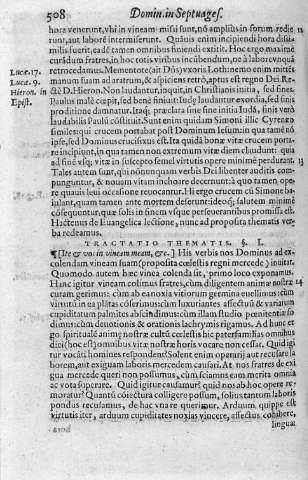 508 Domin. in Septuages.
hora venerunt, vbi in vineam missi sunt, nō ampliùs in forum redie 12
runt, aut laborē intermiserunt. Quibus enim incipiendi hora dissi-
milis fuerit, eadē tamen omnibus finiendi extitit. Hoc ergo maximè
curādum fratres, in hoc totis viribus incūbendum, ne à labore vnquā
Lucæ. 17. retrocedamus. Mementote (ait Dn̄s) vxoris Loth: nemo enim mittēs
Lucæ. 9. manum suam ad aratrum, & aspiciens retrò, aptus est regno Dei. Re-
Hieron. in ctè D. Hieron. Non laudantur, inquit, in Christianis initia, sed fines.
Epist. Paulus malè cœpit, sed benè finiuit: Iudę laudantur exordia, sed finis
proditione damnatur. Itaq; præclara sine fine initia Iudæ, finis verò
laudabilis Pauli cōstituit. Sunt enim quidam Simoni illi Cyreneo
similes: qui crucem portabat post Dominum Iesum: in qua tamē nō
ipse, sed Dominus crucifixus est. Ita quidā bonæ vitæ crucem porta-
re incipiunt, in qua tamen non extremum vitæ diem claudunt: quia
ad finē vsq; vitæ in suscepto semel virtutis opere minimè perdurant. 13
Tales autem sunt, qui nōnunquam verbis Dei libenter auditis com-
punguntur, & nouam vitam inchoare decernunt: à quo tamen ope-
re qualis leui occasione reuocantur. Hi ergo crucem cū Simone ba-
iulant, quam tamen ante mortem deserunt: ideoq; salutem minimè
cōsequuntur, quæ solis in finem vsque perseuerantibus promissa est.
Hactenus de Euangelica lectione, nunc ad proposita thematis ver-
ba redeamus.
TRACTATIO THEMATIS. §. I.
¶ [Ite & vos in vineam meam, &c.] His verbis nos Dominus ad ex-
colendam vineam suam (proposita cœlestis regni mercede) inuitat.
Quomodo autem hæc vinea colenda sit, primo loco exponamus.
Hanc igitur vineam colimus fratres, cùm diligentem animæ nostræ 14
curam gerimus: cùm ab ea noxia vitiorum germina euellimus: cùm
virtutū in ea plātas cōserimus: cùm luxuriantes affectus & variarum
cupiditatum palmites abscindimus: cùm illam studio pœnitentiæ fo-
dimus: cùm deuotionis & orationis lachrymis rigamus. Ad hunc er-
go spiritualē animę nostræ cultū cœlestis hic paterfamilias omnibus
diei (hoc est) omnibus vitæ nostræ horis vocare non cessat. Quid igi-
tur vocāti homines respondent? Solent enim operarij aut recusare la-
borem, aut exiguam laboris mercedem causari. At nos fratres de exi
gua mercede queri non possumus, cùm sciamus eam merita omnia
ac vota superare. Quid igitur causamur? quid nos ab hoc opere re-
moratur? Quantū cōiectura colligere possum, solius tantùm laboris
pondus recusamus, de hac vnare querimur. Arduum, quippe est
virtutis iter, arduum cupiditates noxias vincere, affectus cohibere,
linguæ